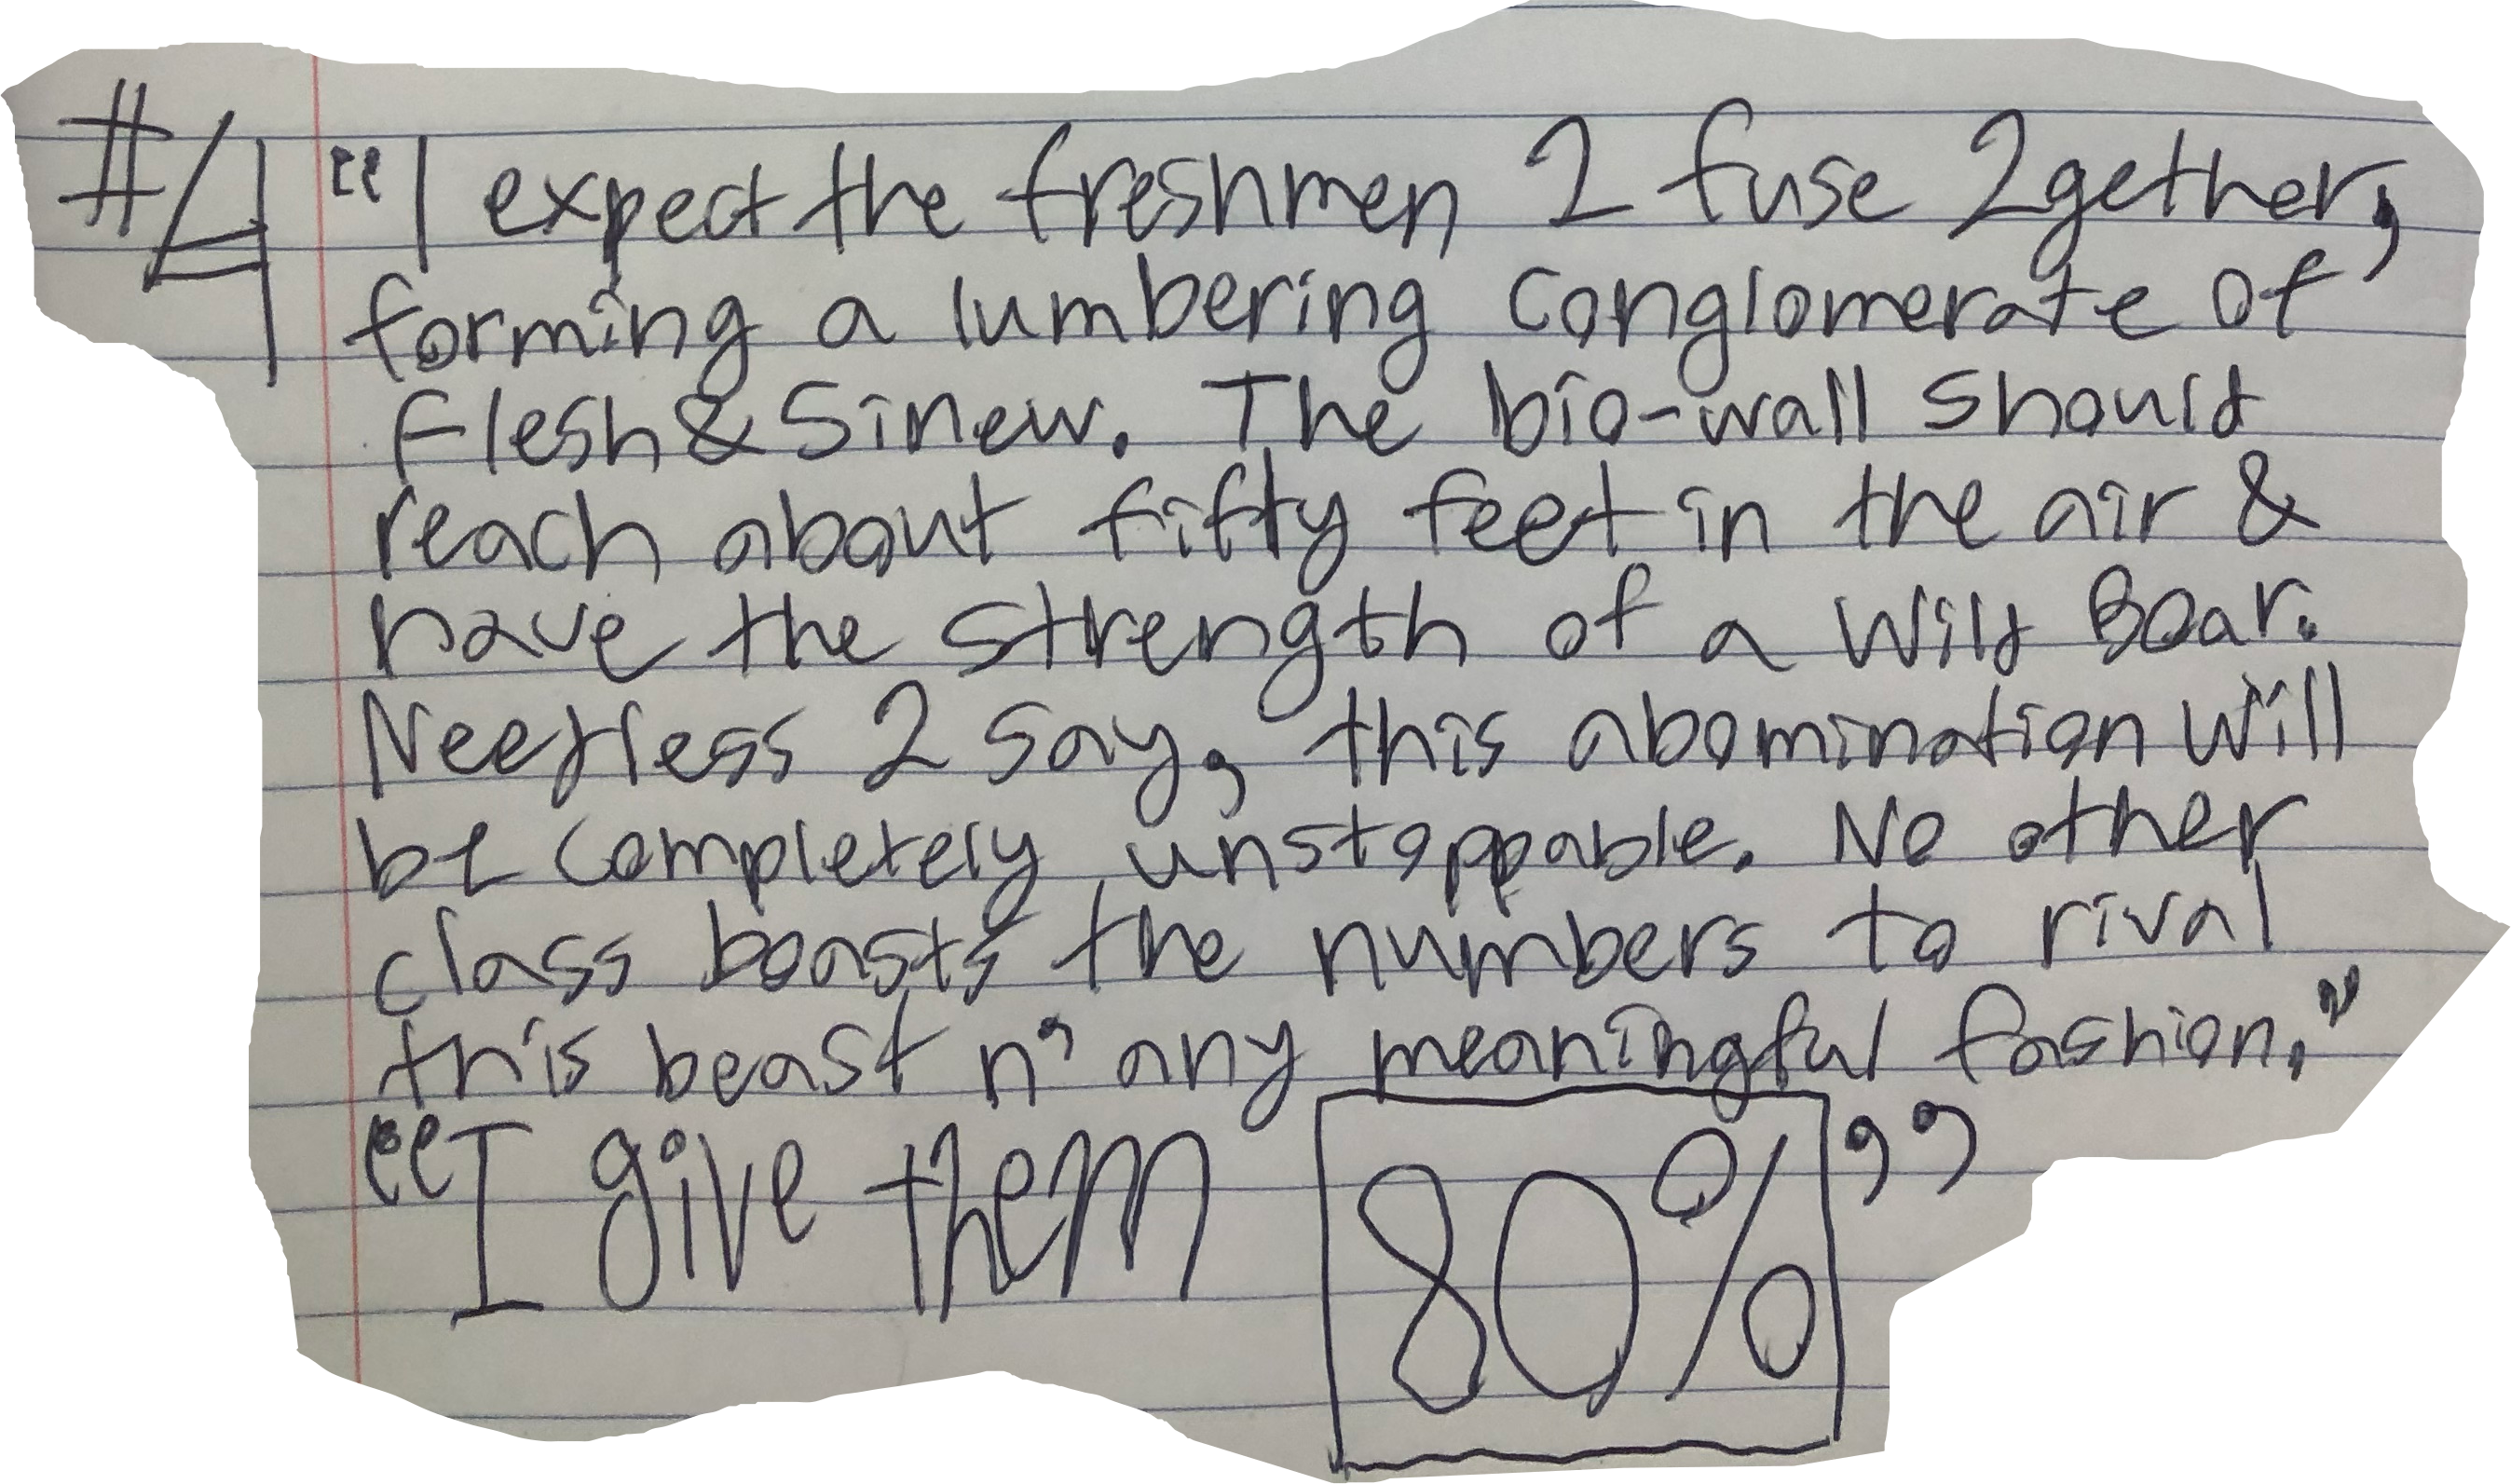 #4 "I expect the freshmen 2 fuse 2gether,
forming a lumbering conglomerate of
flesh & sinew. The bio-wall should
reach about fifty feet in the air &
have the strength of a Wild Boar.
Needless 2 say, this abomination will
be completely unstoppable. No other
class boasts the numbers to rival
this beast n' any meaningful fashion."
"I give them 80%"